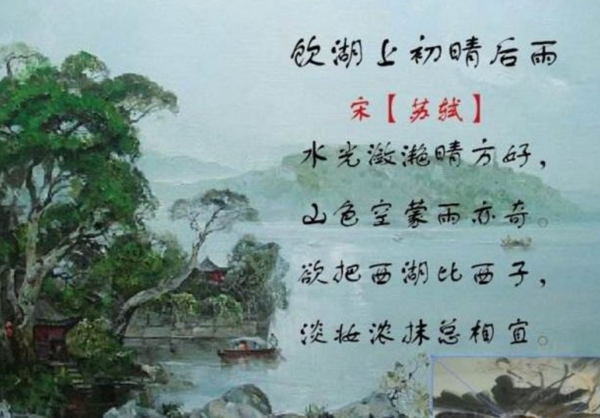 饮湖上初晴后雨
宋【苏轼】
水光潋滟晴方好，
山色空蒙雨亦奇。
欲把西湖比西子，
淡妆浓抹总相宜。